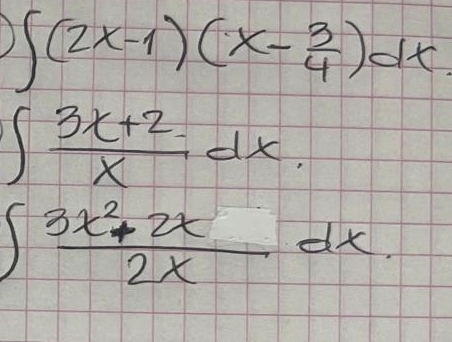 ) ∫ (2x-1) (x - 3/4) dx.
) ∫ (3x+2)/x dx.
∫ (3x² + 2x)/2x dx.